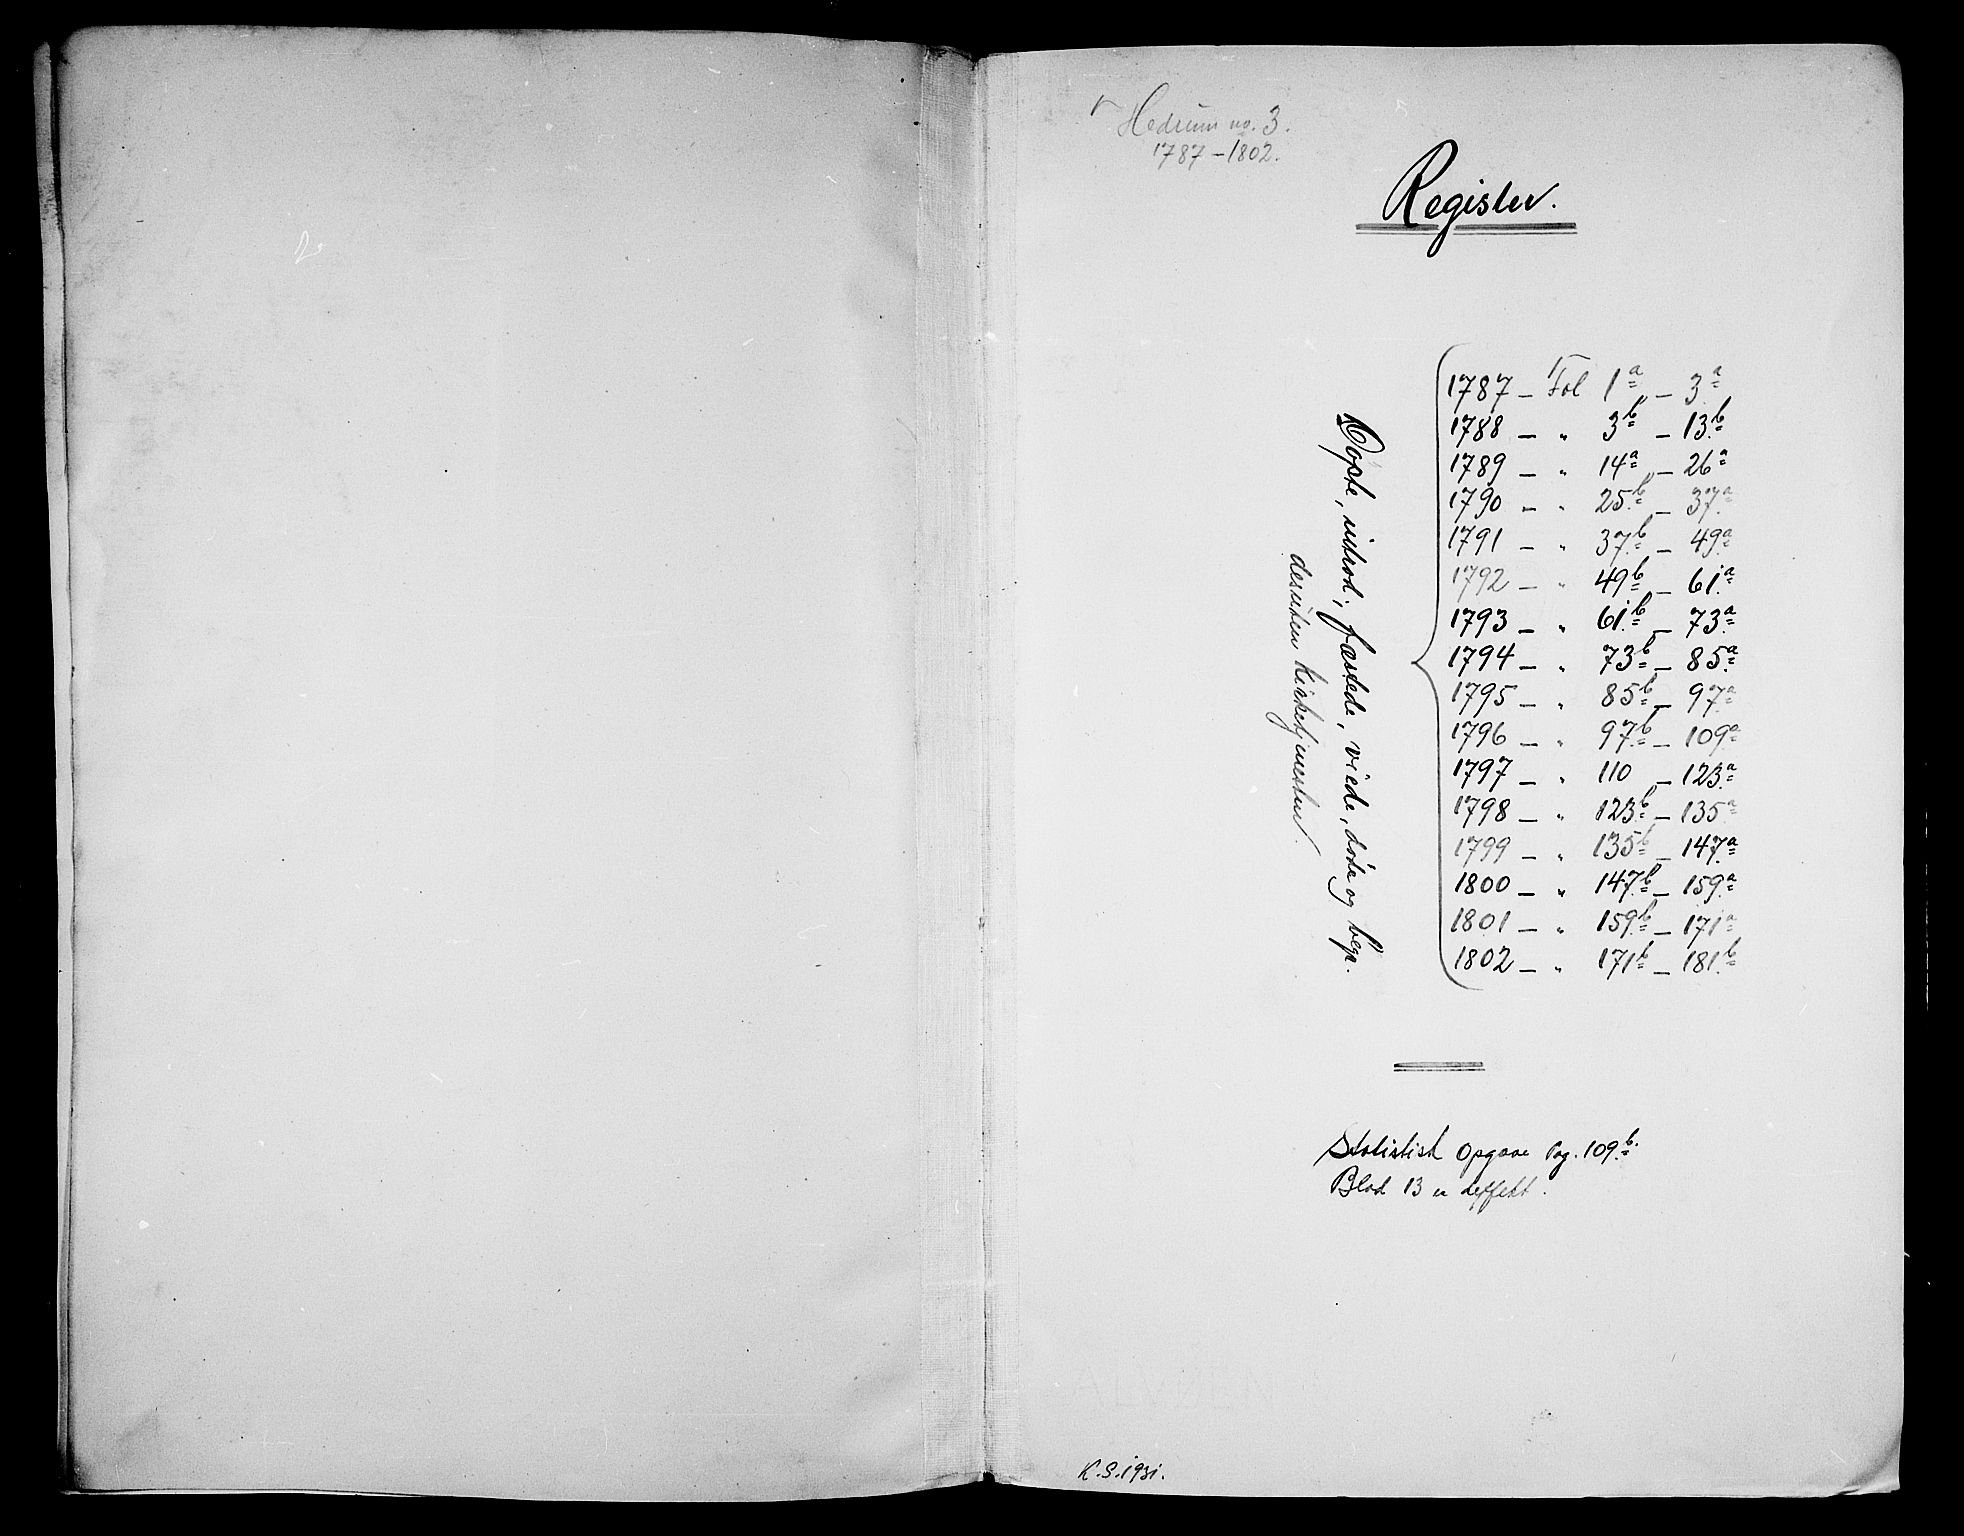 Hedrum no. 3.
1787-1802.
Register.
Døpte, introd; fæstede, viede, døde og begr.
desuten kirketjenester
1787 – Fol 1a – 3a
1788 – " 3b – 13b
1789 – " 14a – 26a
1790 – " 25b – 37a
1791 – " 37b – 49a
1792 – " 49b – 61a
1793 – " 61b – 73a
1794 – " 73b – 85a
1795 – " 85b – 97a
1796 – " 97b – 109a
1797 – " 110 – 123a
1798 – " 123b – 135a
1799 – " 135b – 147a
1800 – " 147b – 159a
1801 – " 159b – 171a
1802 – " 171b – 181b
Statistisk Opgave Pag. 109b.
Blad 13 er deffekt.
K.S. 1931.